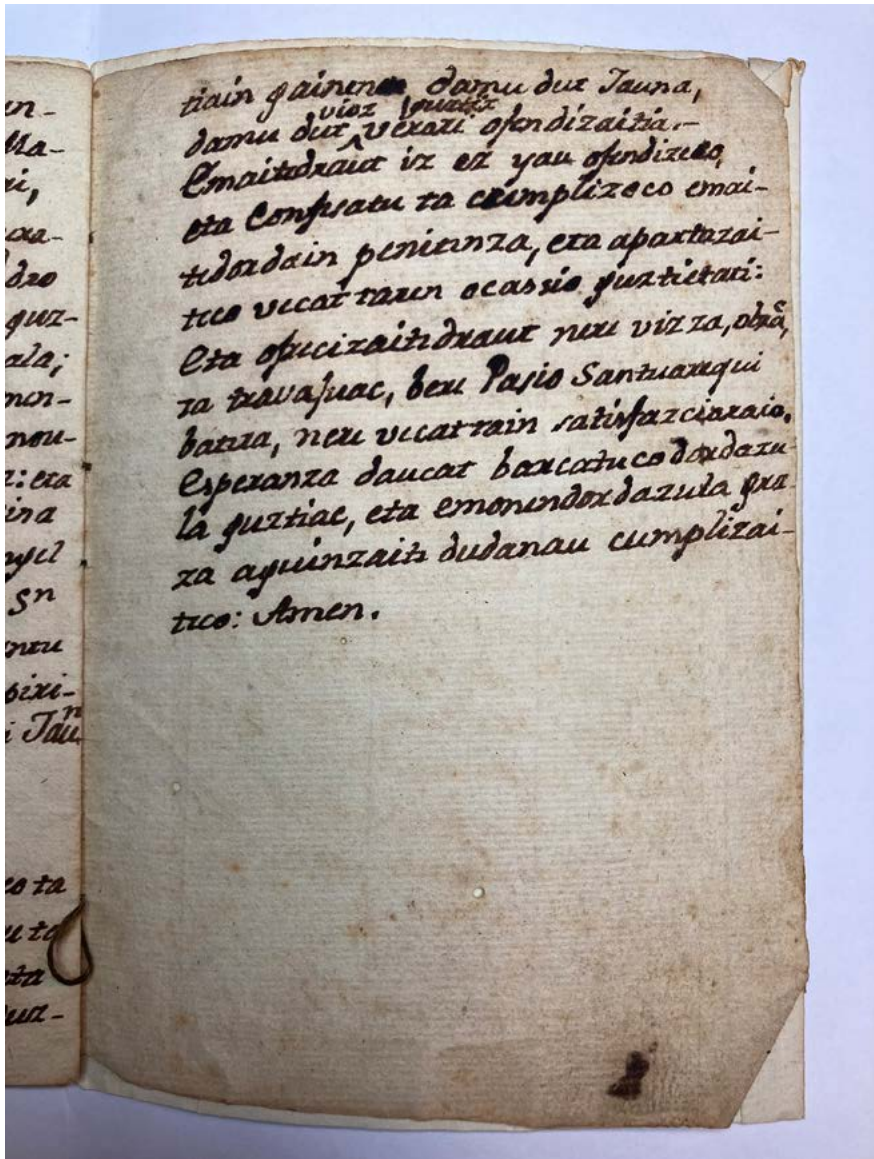 un-
Ma-
ri,
cra-
dro
guz-
ala;
men-
nou-
z: eta
ina
ngel
Sn
ntu
piri-
i Jaun
co ta
u ta
ata
guz-
tiain gainean damu dut Jauna,
vioz guztiz
damu dut verori ofendizaitia.-
Emaitedraut iz ez yau ofendizeco,
eta Confesatu ta cumplizeco emai-
tedordain penitenza, eta apartazai-
teco vecattaren ocassio guztietati:
Eta ofrecizaitedraut nere vizza, obrã,
ta travajuac, bere Pasio Santuarequi
batera, nere vecattain satisfazcioraio.
Esperanza daucat barcatuco dordazu-
la guztiac, eta emonendordazula gra-
za aguinzaite dudanau cumplizai-
teco: Amen.